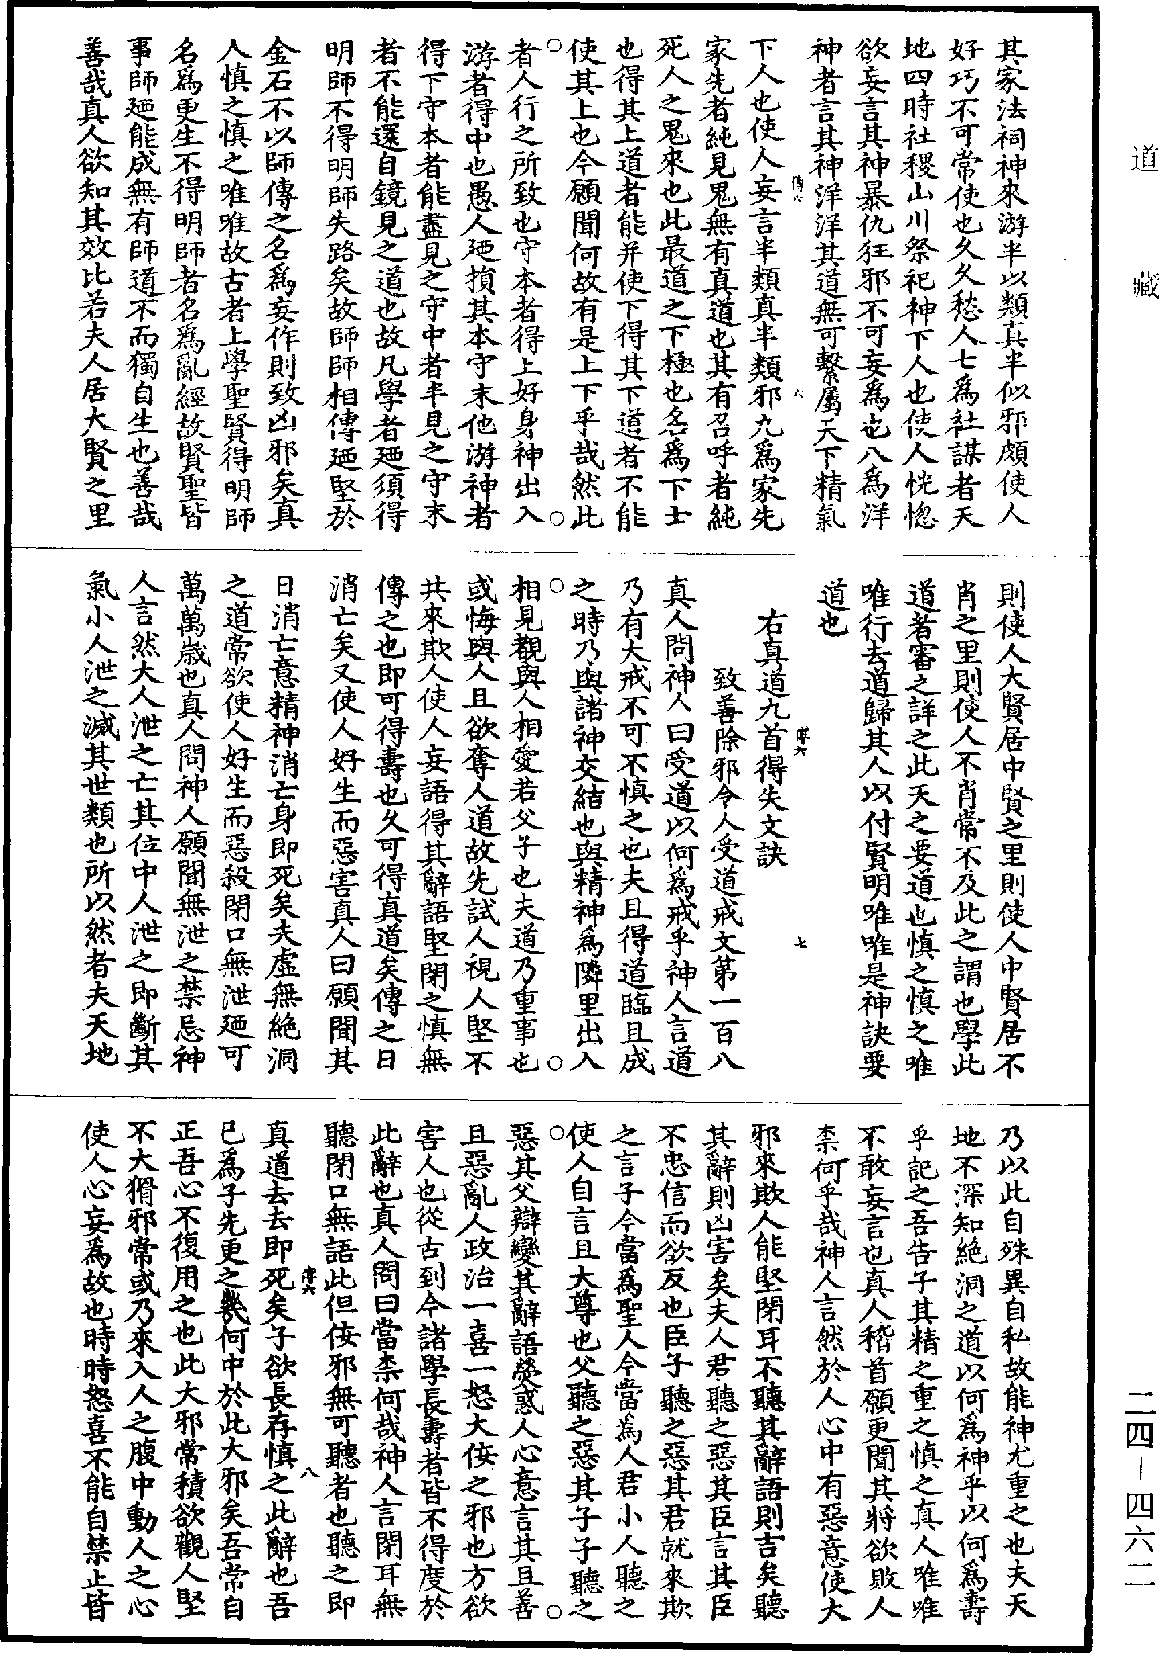 道藏
其家法祠神來游半以類真半似邪頗使人
好巧不可常使也久久愁人七為社謀者天
地四時社稷山川祭祀神下人也使人恍惚
欲妄言其神暴仇狂邪不可妄為也八為洋
神者言其神洋洋其道無可繫屬天下精氣
下人也使人妄言半類真半類邪九為家先
家先者純見鬼無有真道也其有召呼者純
死人之鬼來也此最道之下極也名為下士
也得其上道者能并使下得其下道者不能
使其上也今願聞何故有是上下乎哉然此
者人行之所致也守本者得上好身神出入
游者得中也愚人廼損其本守末他游神者
得下守本者能盡見之守中者半見之守末
者不能還自鏡見之道也故凡學者廼須得
明師不得明師失路矣故師師相傳廼堅於
金石不以師傳之名為妄作則致凶邪矣真
人慎之慎之唯唯故古者上學聖賢得明師
名為更生不得明師者名為亂經故賢聖皆
事師廼能成無有師道不而獨自生也善哉
善哉真人欲知其效比若夫人居大賢之里
則使人大賢居中賢之里則使人中賢居不
肖之里則使人不肖常不及此之謂也學此
道者審之詳之此天之要道也慎之慎之唯
唯行去道歸其人以付賢明唯唯是神訣要
道也
右真道九首得失文訣
七
致善除邪令人受道戒文第一百八
真人問神人曰受道以何為戒乎神人言道
乃有大戒不可不慎之也夫且得道臨且成
之時乃與諸神交結也與精神為隣里出入
相見觀與人相愛若父子也夫道乃重事也
或悔與人且欲奪人道故先試人視人堅不
共來欺人使人妄語得其辭語堅閉之慎無
傳之也即可得壽也久可得真道矣傳之日
消亡矣又使人好生而惡害真人曰願聞其
日消亡意精神消亡身即死矣夫虛無絶洞
之道常欲使人好生而惡殺閉口無泄廼可
萬萬歲也真人問神人願聞無泄之禁忌神
人言然大人泄之亡其位中人泄之即斷其
氣小人泄之滅其世類也所以然者夫天地
乃以此自殊異自私故能神尤重之也夫天
地不深知絶洞之道以何為神乎以何為壽
乎記之吾告子其精之重之慎之真人唯唯
不敢妄言也真人稽首願更聞其將欲敗人
柰何乎哉神人言然於人心中有惡意使大
邪來欺人能堅閉耳不聽其辭語則吉矣聽
其辭則凶害矣夫人君聽之惡其臣言其臣
不忠信而欲反也臣子聽之惡其君就來欺
之言子今當為聖人今當為人君小人聽之
使人自言且大尊也父聽之惡其子子聽之
惡其父辯變其辭語熒惑人心意言其且善
且惡亂人政治一喜一怒大佞之邪也方欲
害人也從古到今諸學長壽者皆不得度於
此辭也真人問曰當柰何哉神人言閉耳無
聽閉口無語此但佞邪無可聽者也聽之即
八
真道去去即死矣子欲長存慎之此辭也吾
已為子先更之幾何中於此大邪矣吾常自
正吾心不復用之也此大邪常積欲觀人堅
不大猾邪常或乃來入人之腹中動人之心
使人心妄為故也時時怒喜不能自禁止皆
二四—四六二